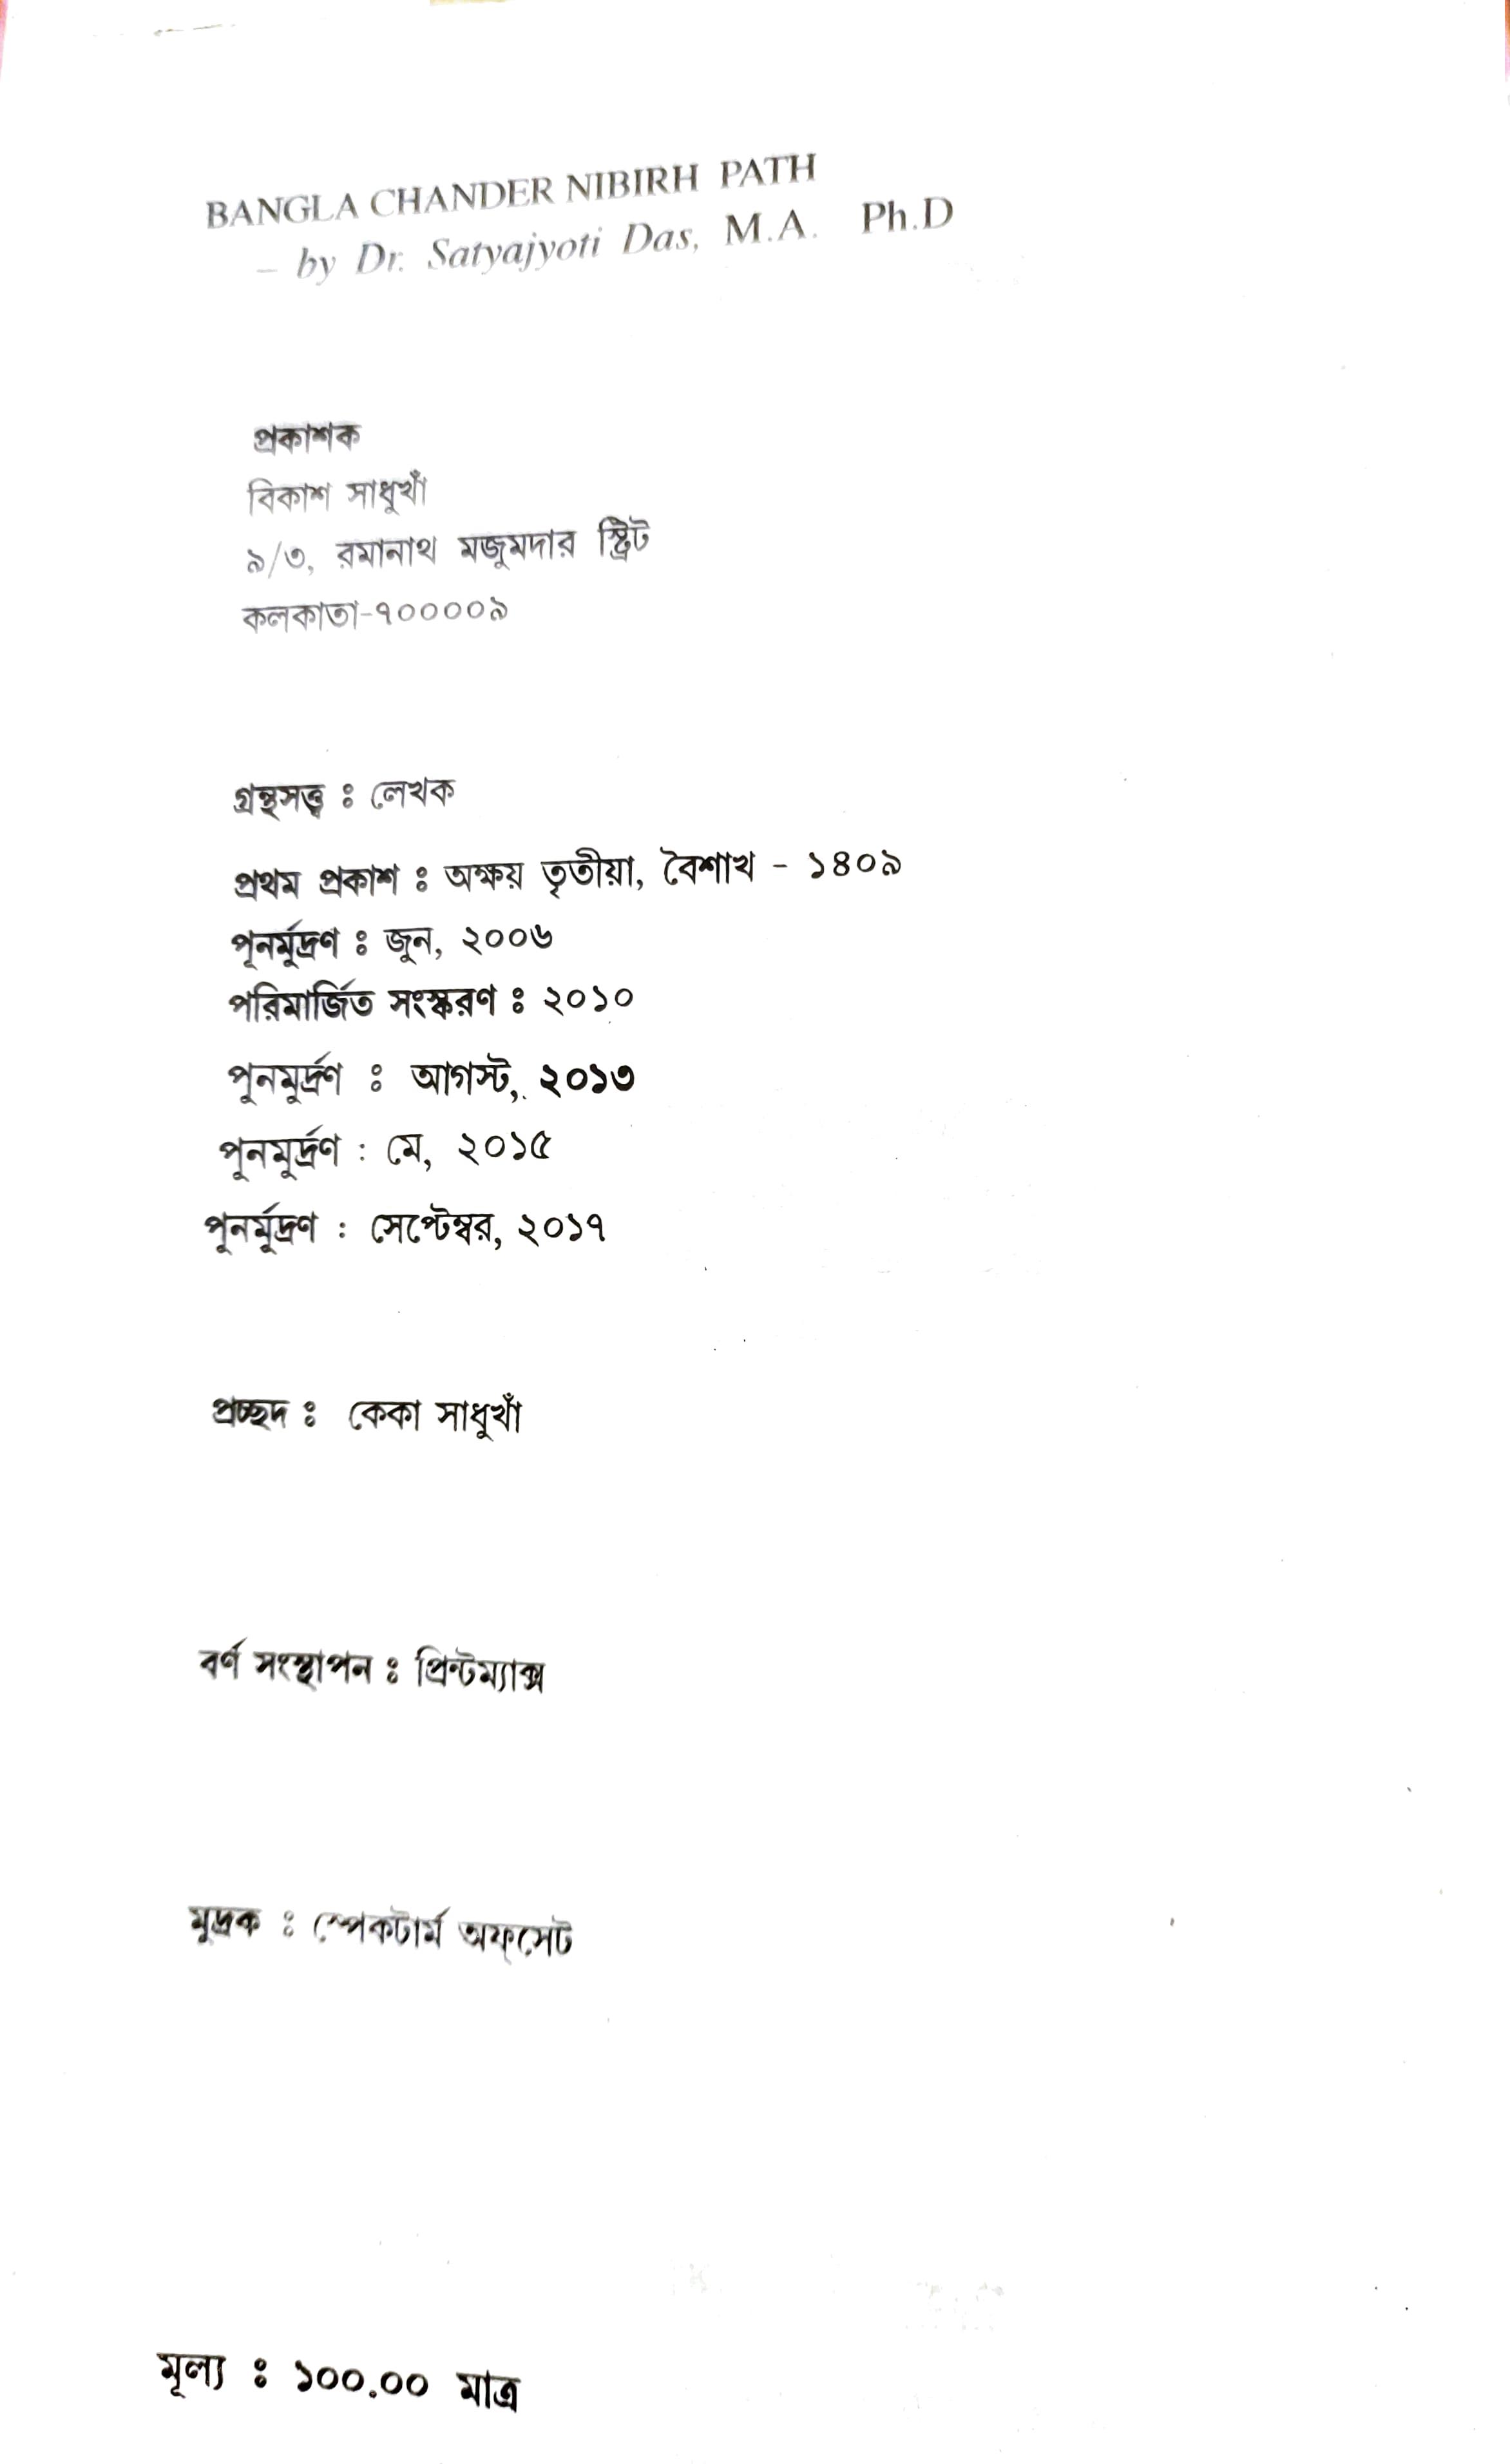 BANGLA CHANDER NIBIRH PATH
– by Dr. Satyajyoti Das, M.A. Ph.D
প্রকাশক
বিকাশ সাধুখাঁ
৯/৩, রমানাথ মজুমদার স্ট্রিট
কলকাতা-৭০০০০৯
গ্রন্থসত্ত্ব ঃ লেখক
প্রথম প্রকাশ ঃ অক্ষয় তৃতীয়া, বৈশাখ - ১৪০৯
পূনর্মুদ্রণ ঃ জুন, ২০০৬
পরিমার্জিত সংস্করণ ঃ ২০১০
পুনমুর্দ্রণ ঃ আগস্ট, ২০১৩
পুনমুর্দ্রণ : মে, ২০১৫
পুনর্মুদ্রণ : সেপ্টেম্বর, ২০১৭
প্রচ্ছদ ঃ কেকা সাধুখাঁ
বর্ণ সংস্থাপন ঃ প্রিন্টম্যাক্স
মুদ্রক ঃ স্পেকটার্ম অফ্‌সেট
মূল্য ঃ ১০০.০০ মাত্র